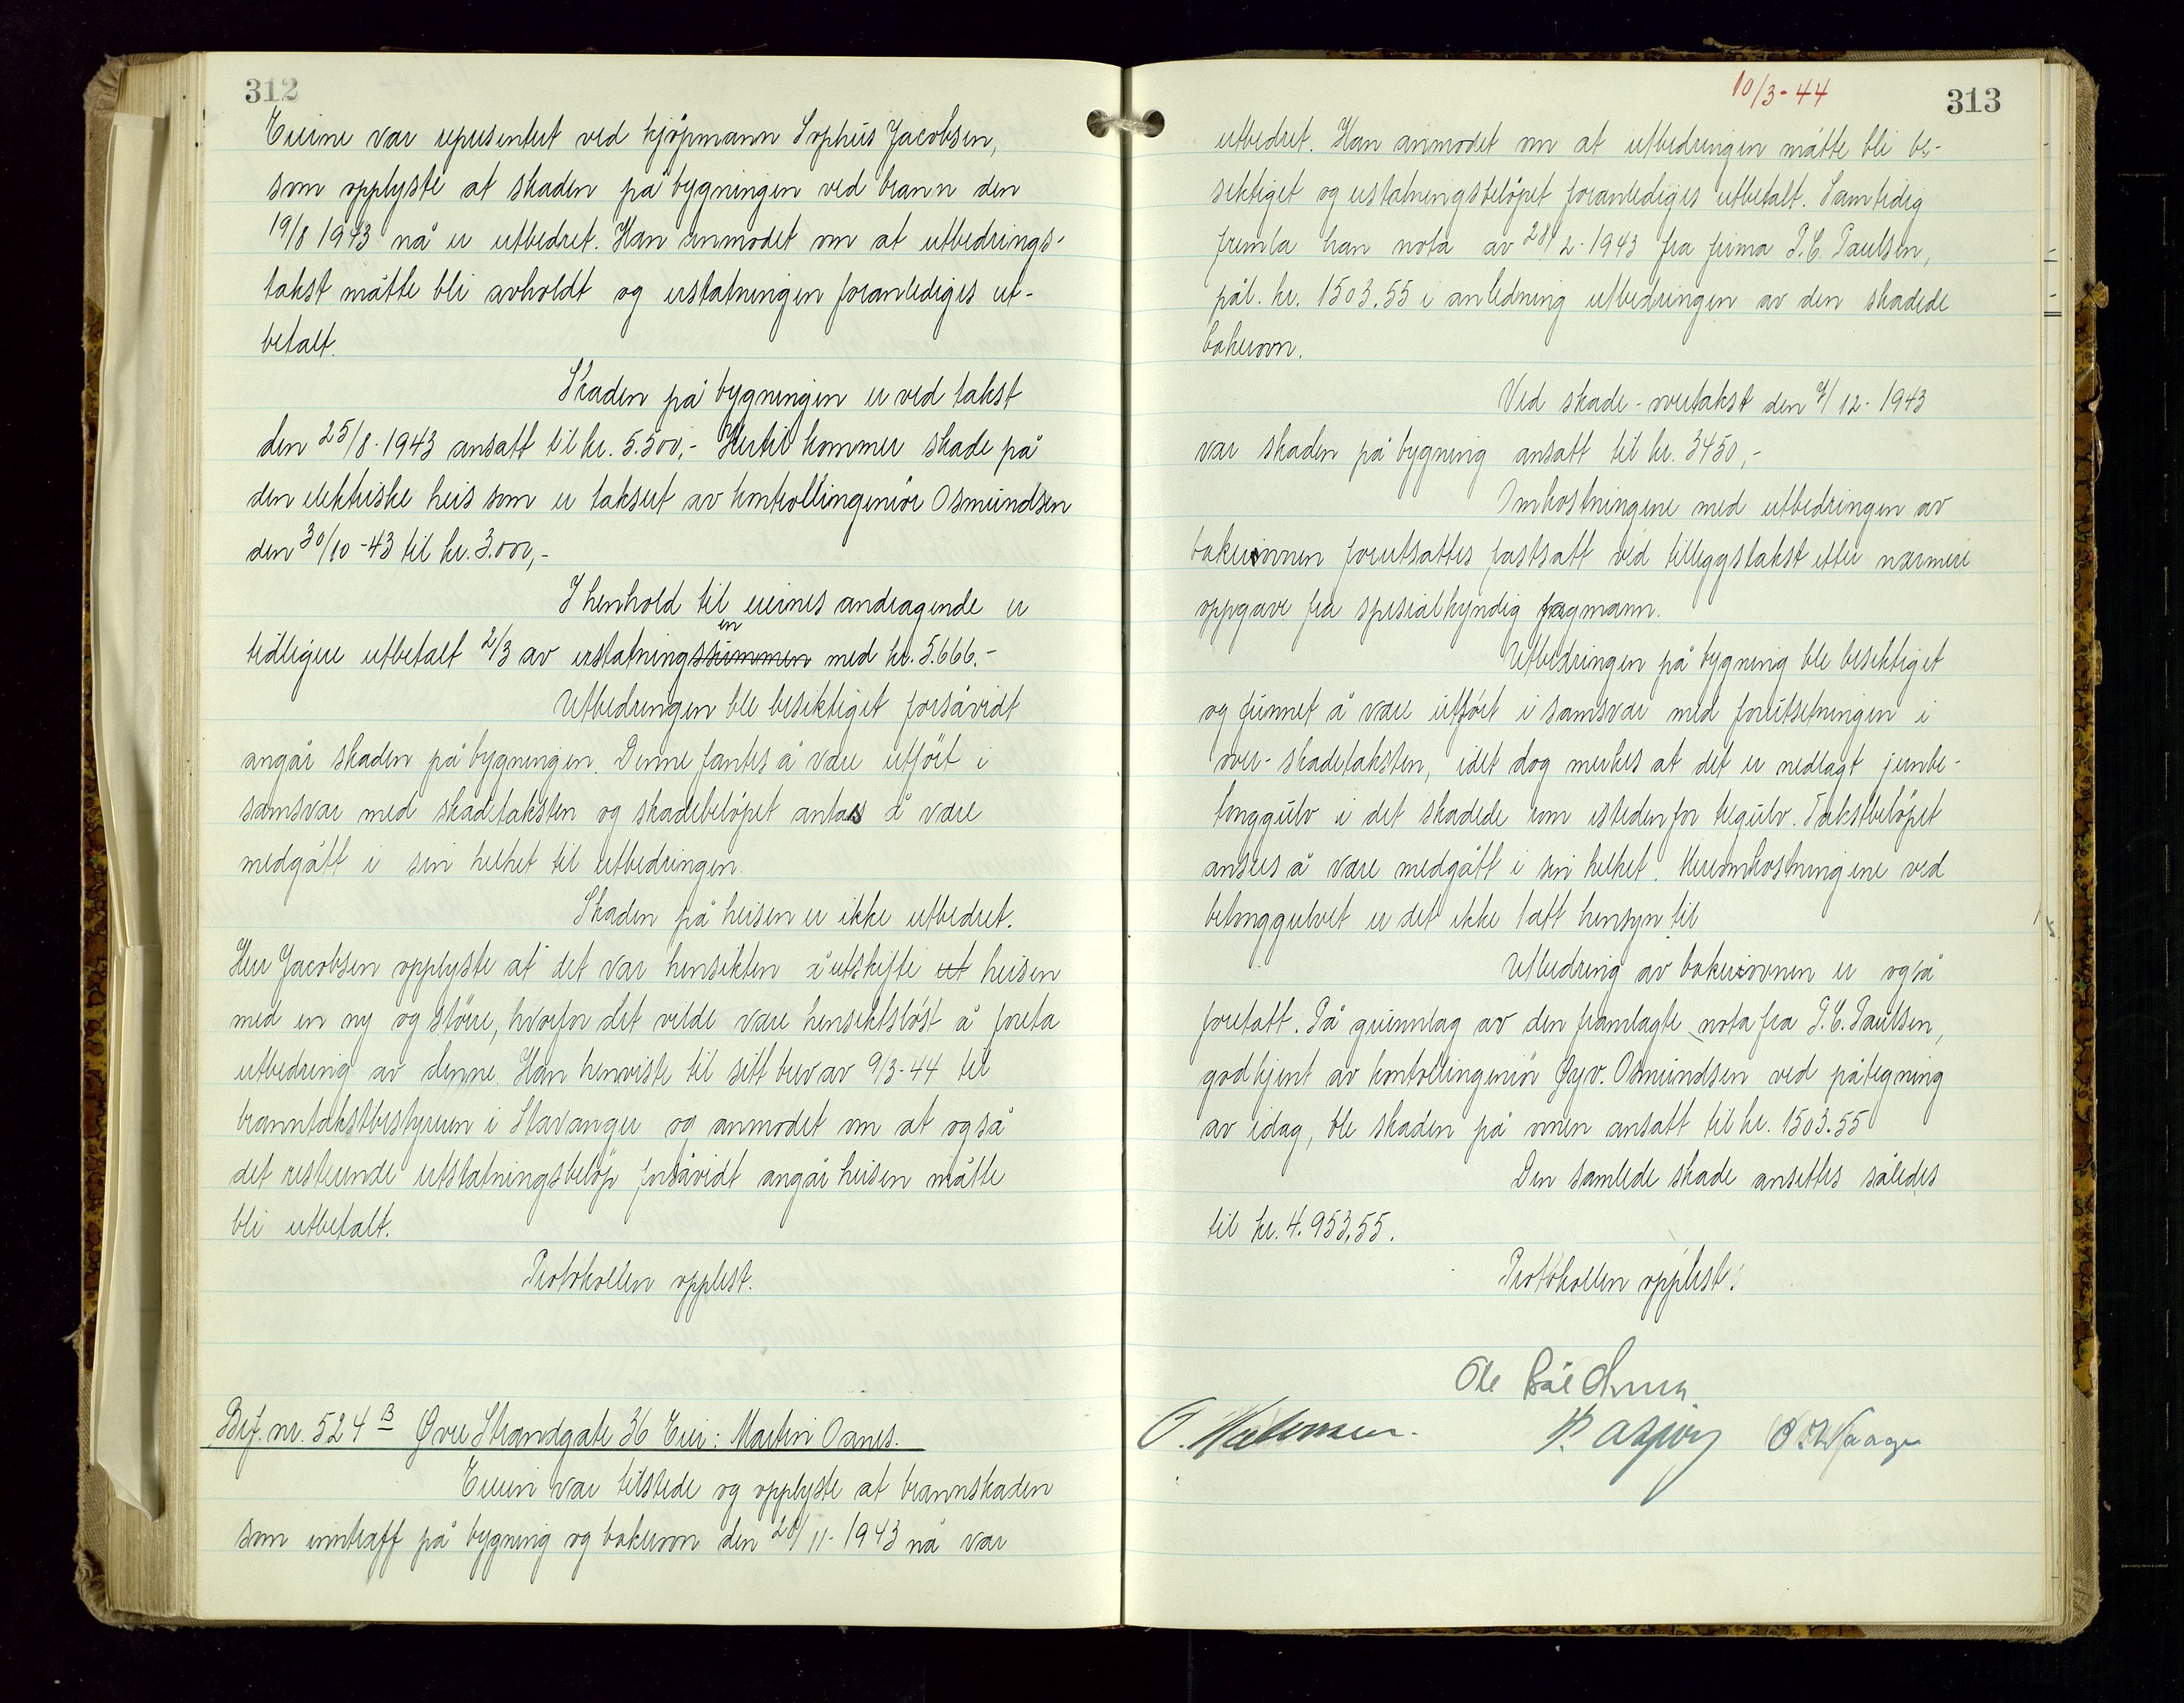 312
Eierne var representert ved kjöpmann Sophus Jacobsen,
som opplyste at skaden på bygningen ved brann den
19/8 1943 nå er utbedret. Han anmodet om at utbedrings-
takst måtte bli avholdt og erstatningen foranlediges ut-
betalt.
Skaden på bygningen er ved takst
den 25/8-1943 ansatt til kr. 5.500,- Hertil kommer skade på
den elektriske heis som er taksert av kontrollingeniör Osmundsen
den 30/10-43 til kr. 3.000,-
I henhold til eiernes andragende er
tidligere utbetalt 2/3 av erstatningssummen en med kr. 5.666.-
Utbedringen ble besiktiget forsåvidt
angår skaden på bygningen. Denne fantes å være utfört i
samsvar med skadetaksten og skadebelöpet antas å være
medgått i sin helhet til utbedringen.
Skaden på heisen er ikke utbedret.
Herr Jacobsen opplyste at det var hensikten å utskifte ut heisen
med en ny og större, hvorfor det vilde være hensiktslöst å foreta
utbedring av denne. Han henviste til sitt brev av 9/3-44 til
branntakstbestyreren i Stavanger og anmodet om at også
det resterende erstatningsbelöp forsåvidt angår heisen måtte
bli utbetalt.
Protokollen opplest.
Brf. nr. 524 B Øvre Strandgate 36 Eier: Martin Oanes.
Eieren var tilstede og opplyste at brannskaden
som inntraff på bygning og bakerovn den 20/11-1943 nå var
10/3-44
313
utbedret. Han anmodet om at utbedringen måtte bli be-
siktiget og erstatningsbelöpet foranlediges utbetalt. Samtidig
fremla han nota av 28/2-1943 fra firma P.C. Paulsen,
pål. kr. 1503.55 i anledning utbedringen av den skadede
bakerovn.
Ved skade-overtakst den 7/12-1943
var skaden på bygning ansatt til kr. 3450,-
Omkostningene med utbedringen av
bakerovnen forutsattes fastsatt ved tilleggstakst etter nærmere
oppgave fra spesialkyndig fagmann.
Utbedringen på bygning ble besiktiget
og funnet å være utfört i samsvar med forutsetningen i
over-skadetaksten, idet dog merkes at det er nedlagt jernbe-
tonggulv i det skadede rom istedenfor tregulv. Takstbelöpet
ansees å være medgått i sin helhet. Meromkostningene ved
betonggulvet er det ikke tatt hensyn til
Utbedring av bakerovnen er også
foretatt. På grunnlag av den framlagte nota fra P.C. Paulsen,
godkjent av kontrollingeniör Øyv. Osmundsen ved påtegning
av idag, ble skaden på ovnen ansatt til kr. 1503.55
Den samlede skade ansettes således
til kr. 4.953,55.
Protokollen opplest.